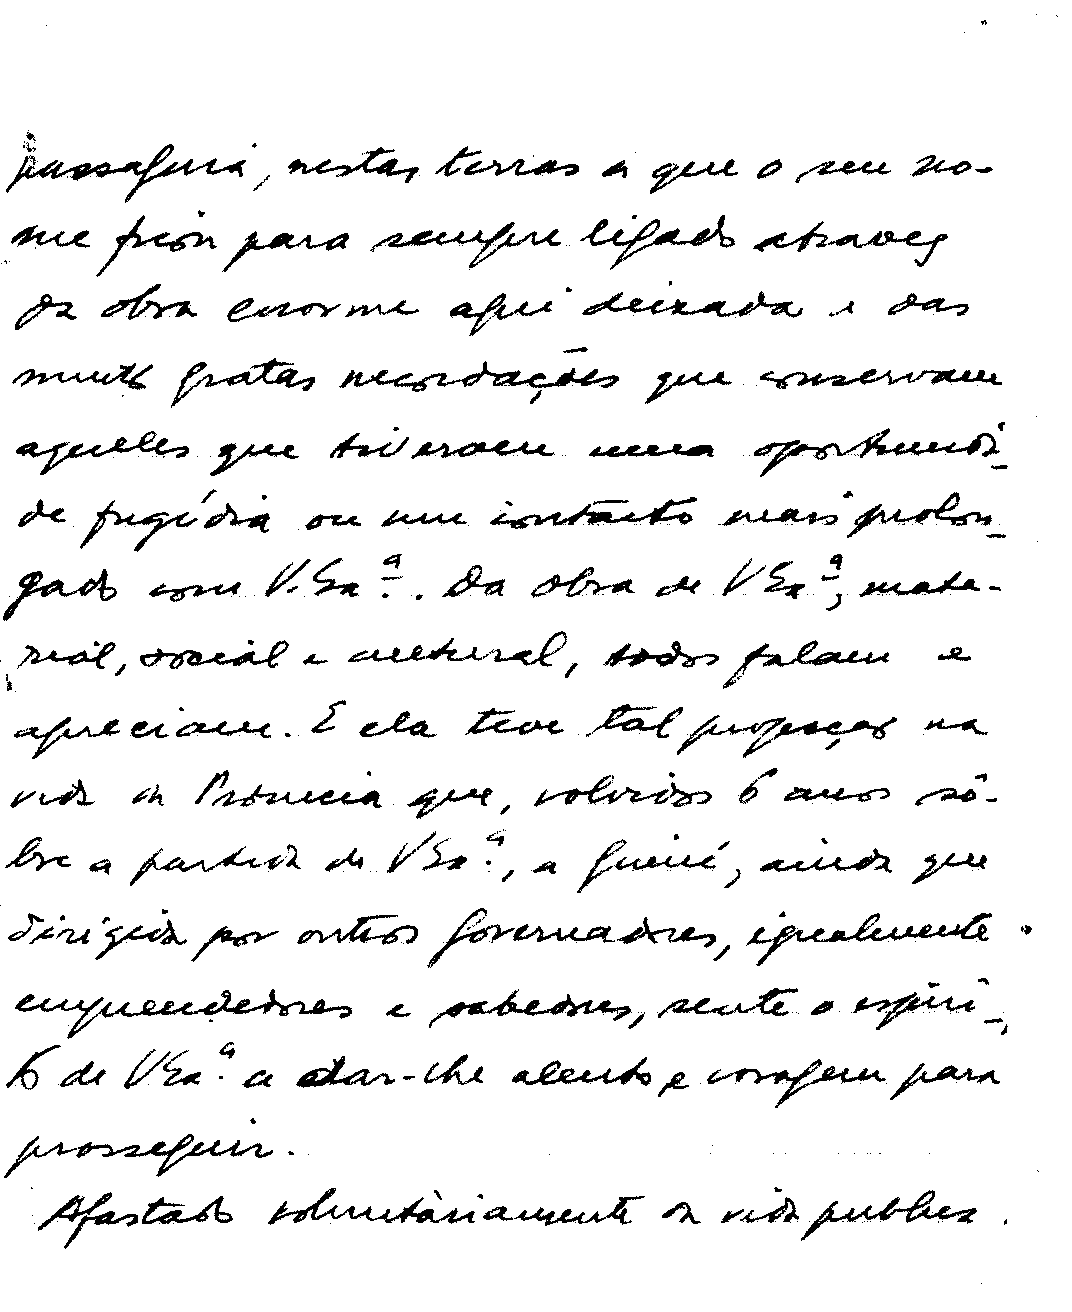 passageira, nestas terras a que o seu no-
me ficou para sempre ligado atraves
da obra enorme aqui deixada e das
muito gratas recordações que conservam
aqueles que tiveram uma oportunida-
de fugídia ou um contacto mais prolon-
gado com V. Exª. Da obra de V Exª, mate-
rial, social e cultural, todos falam e
apreciam. E ela teve tal projecção na
vida da Provincia que, volvidos 6 anos sô-
bre a partida de V Exª., a Guiné, ainda que
dirigida por outros Governadores, igualmente
empreendedores e sabedores, sente o espiri-
to de V Exª a dar-lhe alento e coragem para
prosseguir.
Afastado voluntàriamente da vida publica